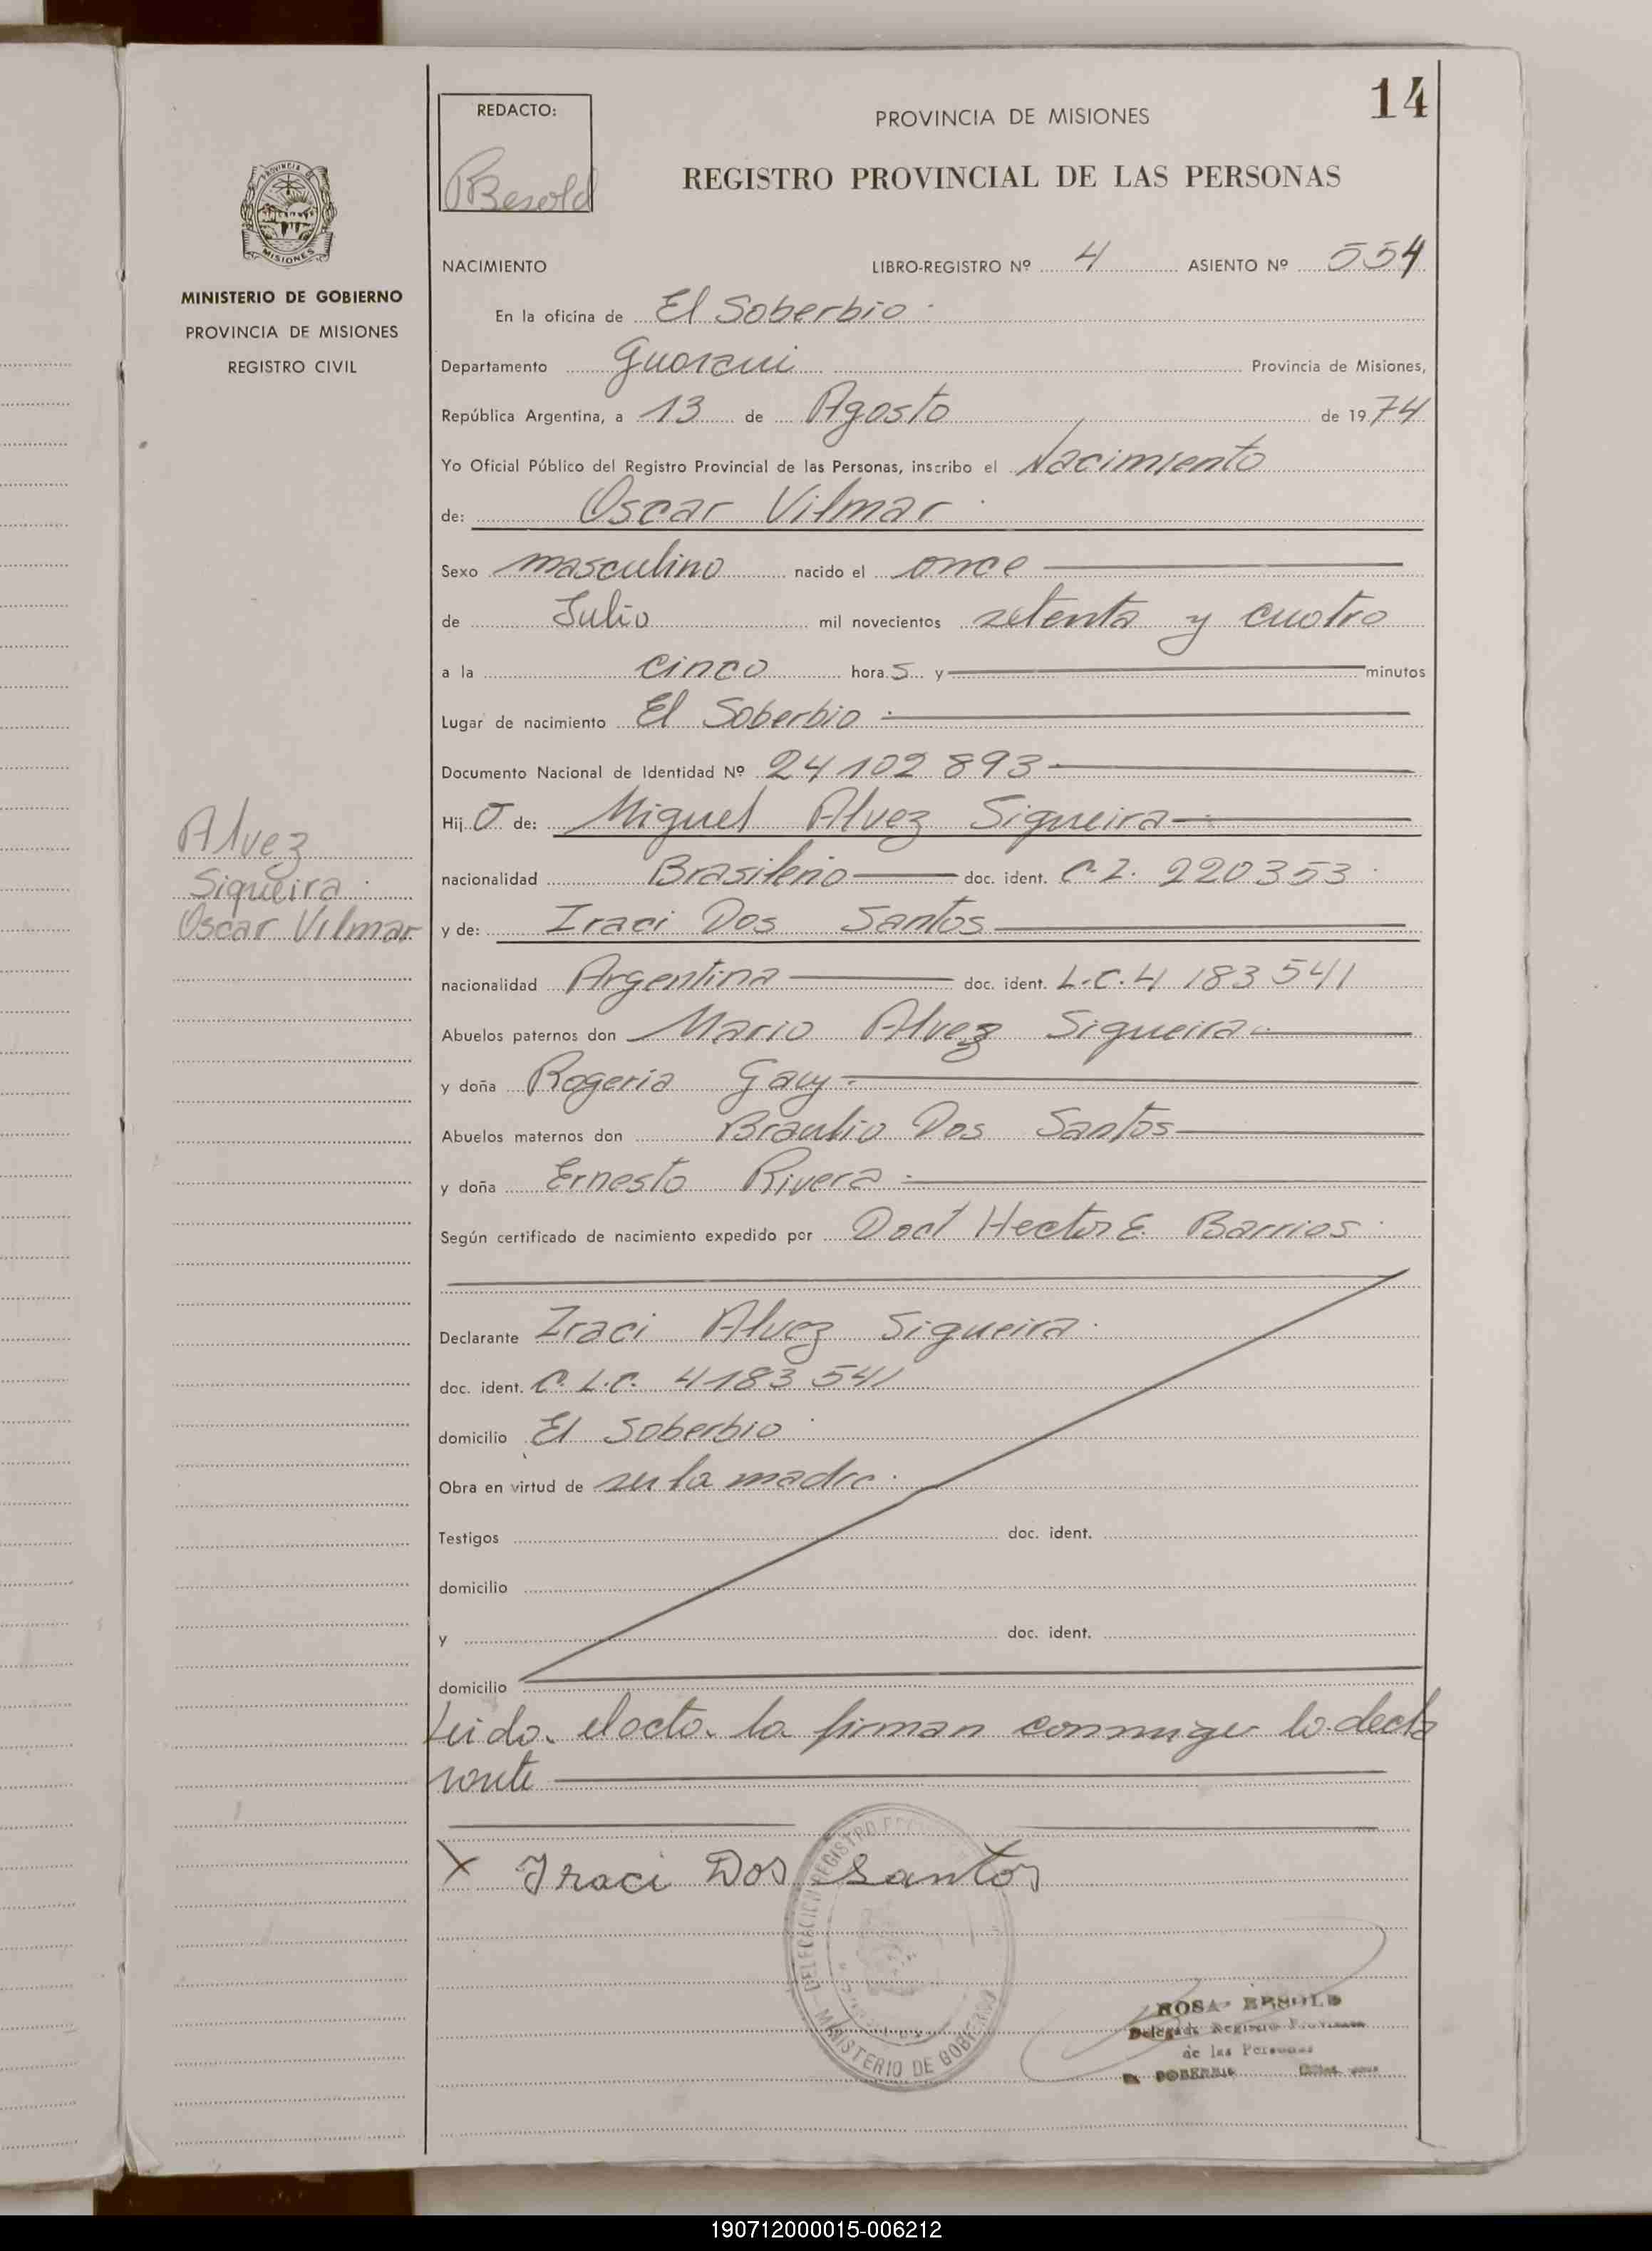 14
REDACTO:
RBesold
PROVINCIA DE MISIONES
REGISTRO PROVINCIAL DE LAS PERSONAS
PROVINCIA DE
MISIONES
MINISTERIO DE GOBIERNO
PROVINCIA DE MISIONES
REGISTRO CIVIL
NACIMIENTO LIBRO-REGISTRO Nº 4 ASIENTO Nº 554
En la oficina de El Soberbio
Departamento Guarani Provincia de Misiones,
República Argentina, a 13 de Agosto de 1974
Yo Oficial Público del Registro Provincial de las Personas, inscribo el Nacimiento
de: Oscar Vilmar
Sexo masculino nacido el once
de Julio mil novecientos setenta y cuatro
a la cinco horas y minutos
Lugar de nacimiento El Soberbio
Documento Nacional de Identidad Nº 24102893
Hijo de: Miguel Alvez Siqueira
nacionalidad Brasileño doc. ident. C.I. 220353
y de: Iraci Dos Santos
nacionalidad Argentina doc. ident. L.C. 4183541
Abuelos paternos don Mario Alvez Siqueira
y doña Rogeria
Abuelos maternos don Braulio Dos Santos
y doña Ernesto Rivera
Según certificado de nacimiento expedido por Doct Hector E. Barrios
Declarante Iraci Alvez Siqueira
doc. ident. C. L.C. 4183541
domicilio El Soberbio
Obra en virtud de ser la madre
Testigos doc. ident.
domicilio
y doc. ident.
domicilio
Leida el acta la firman conmigo la decla
rante
X Iraci Dos Santos
Alvez
Siqueira
Oscar Vilmar
DELEGACION REGISTRO
MINISTERIO DE GOBIERNO
ROSA BESOLD
Delegada Registro Provincial
de las Personas
EL SOBERBIO
190712000015-006212